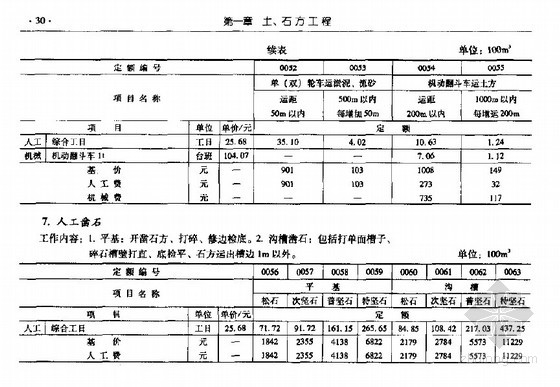 ·30· 第一章 土、石方工程
续表 单位：100m³
定额编号 0052 0053 0054 0055
项目名称 单（双）轮车运淤泥、流砂 机动翻斗车运土方
运距 500m以内 运距 1000m以内
50m以内 每增加50m 200m以内 每增运200m
项目 单位 单价/元 定额
人工 综合工日 工日 25.68 35.10 4.02 10.63 1.24
机械 机动翻斗车1t 台班 104.07 — — 7.06 1.12
基价 元 — 901 103 1008 149
人工费 元 — 901 103 273 32
机械费 元 — 735 117
7. 人工凿石
工作内容：1. 平基：开凿石方、打碎、修边检底。2. 沟槽凿石：包括打单面槽子、
碎石槽壁打直、底检平、石方运出槽边1m以外。
单位：100m³
定额编号 0056 0057 0058 0059 0060 0061 0062 0063
项目名称 平基 沟槽
松石 次坚石 普坚石 特坚石 松石 次坚石 普坚石 特坚石
项目 单位 单价/元 定额
人工 综合工日 工日 25.68 71.72 91.72 161.15 265.65 84.85 108.42 217.03 437.25
基价 元 — 1842 2355 4138 6822 2179 2784 5573 11229
人工费 元 — 1842 2355 4138 6822 2179 2784 5573 11229